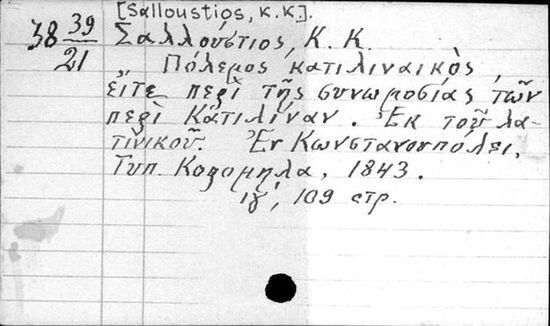 [Salloustios, K.K.].
38 39/21
Σαλλούστιος, Κ. Κ.
Πόλεμος κατιλιναικὸς,
εἴτε περὶ τῆς συνωμοσίας τῶν
περὶ Κατιλίναν. Ἐκ τοῦ λα-
τινικοῦ. Ἐν Κωνσταντουπόλει,
Τυπ. Κορομηλα, 1843.
ιγ', 109 стр.